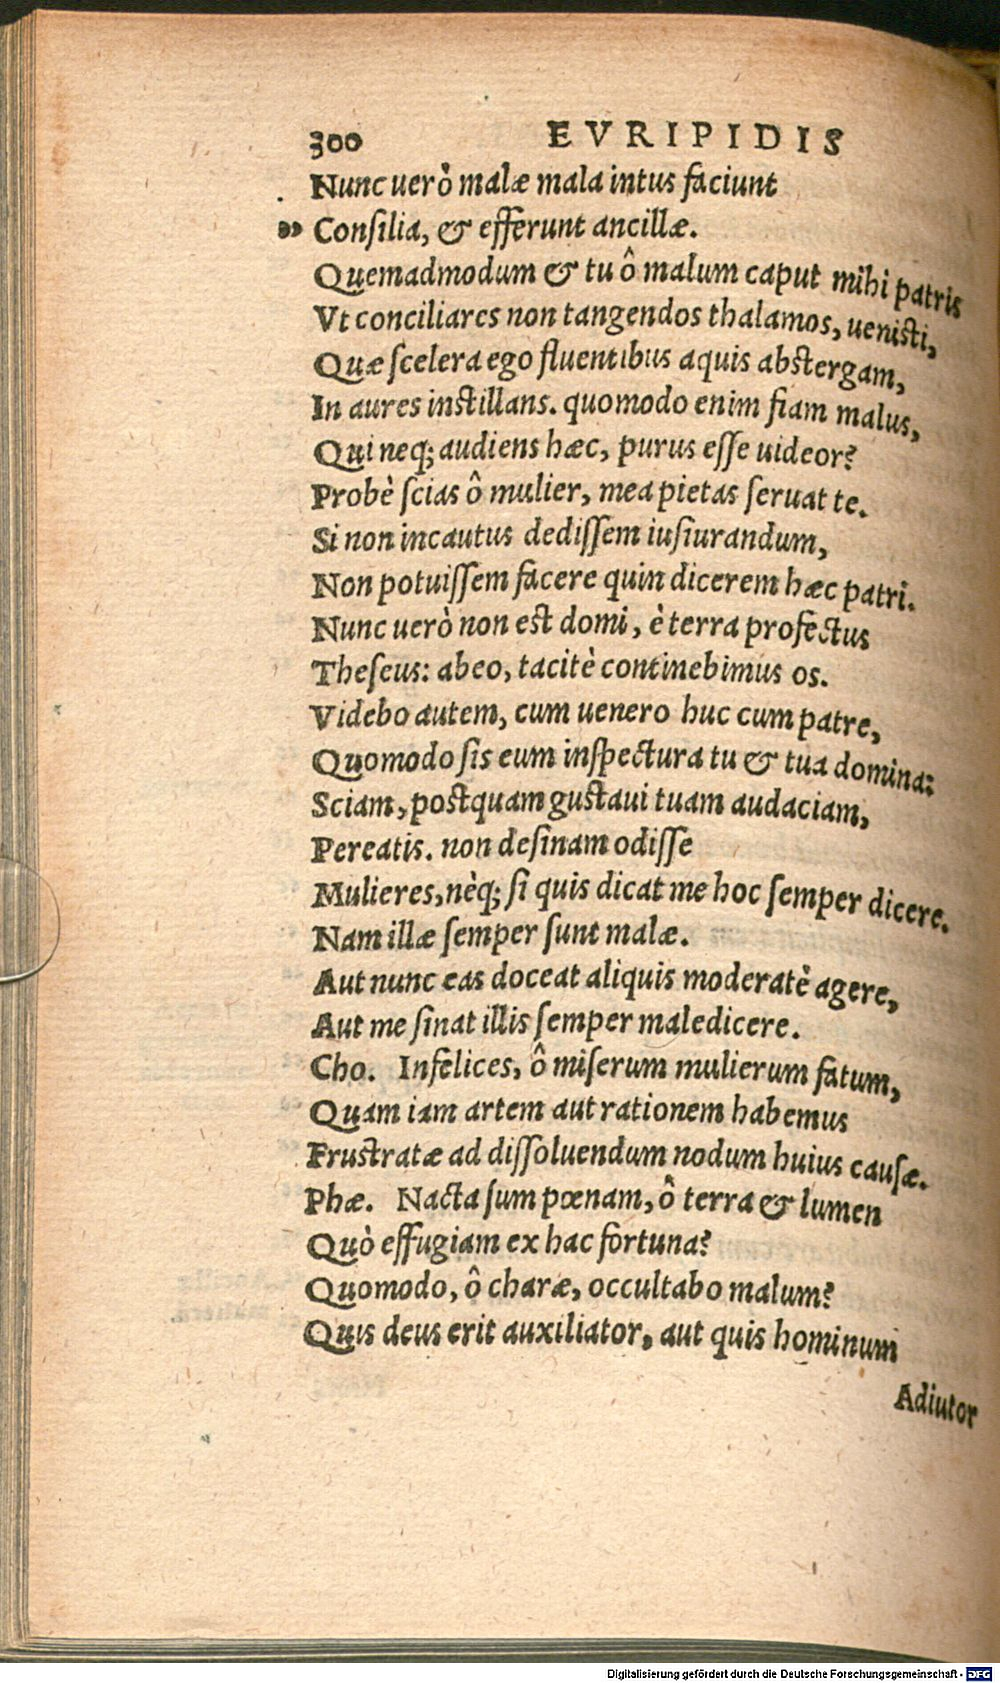 300 EVRIPIDIS
Nunc uerò malæ mala intus faciunt
Consilia, & efferunt ancillæ.
Quemadmodum & tu ô malum caput mihi patris
Vt conciliares non tangendos thalamos, uenisti,
Quæ scelera ego fluentibus aquis abstergam,
In aures instillans. quomodo enim fiam malus,
Qui neq; audiens hæc, purus esse uideor?
Probè scias ô mulier, mea pietas seruat te.
Si non incautus dedissem iusiurandum,
Non potuissem facere quin dicerem hæc patri.
Nunc uerò non est domi, è terra profectus
Theseus: abeo, tacitè continebimus os.
Videbo autem, cum uenero huc cum patre,
Quomodo sis eum inspectura tu & tua domina:
Sciam, postquam gustaui tuam audaciam,
Pereatis. non desinam odisse
Mulieres, nèq; si quis dicat me hoc semper dicere.
Nam illæ semper sunt malæ.
Aut nunc eas doceat aliquis moderatè agere,
Aut me sinat illis semper maledicere.
Cho. Infelices, ô miserum mulierum fatum,
Quam iam artem aut rationem habemus
Frustratæ ad dissoluendum nodum huius causæ.
Phæ. Nacta sum pœnam, ô terra & lumen
Quò effugiam ex hac fortuna?
Quomodo, ô charæ, occultabo malum?
Quis deus erit auxiliator, aut quis hominum
Adiutor
Digitalisierung gefördert durch die Deutsche Forschungsgemeinschaft - DFG